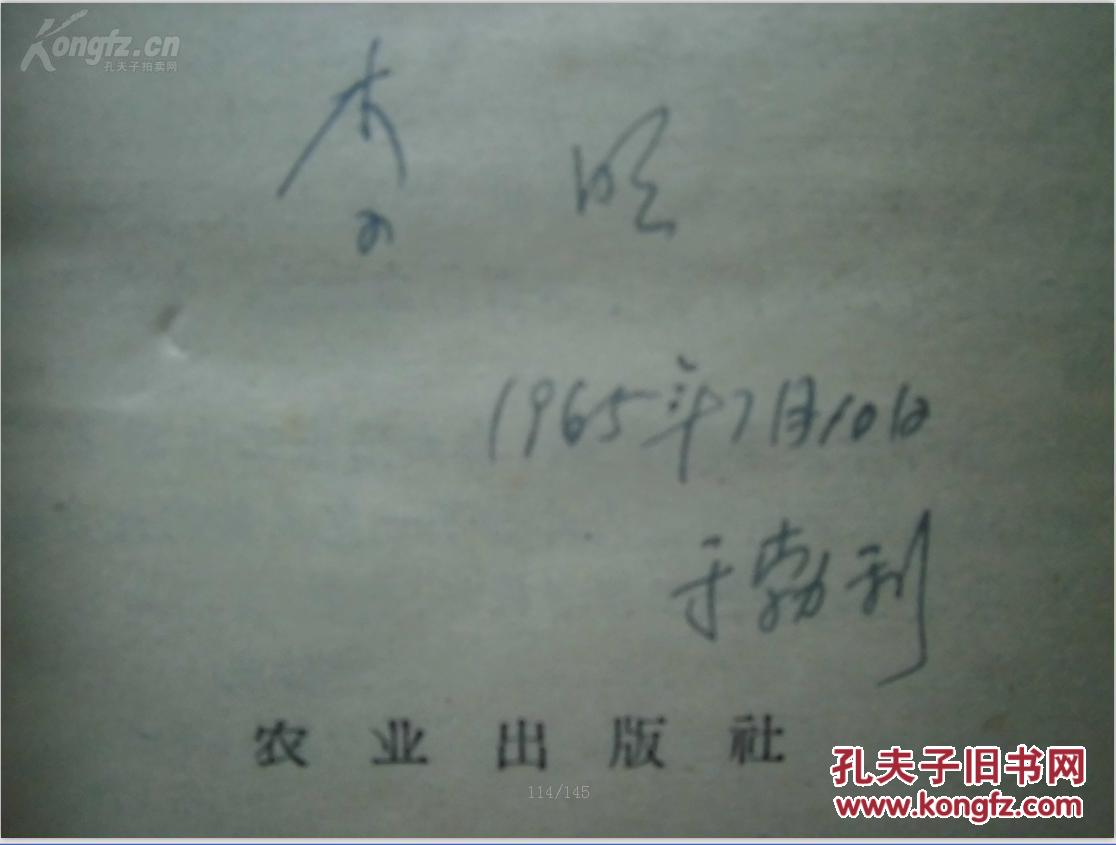 Kongfz.cn
孔夫子拍卖网
1965年7月10日
于勃利
农业出版社
114/145
孔夫子旧书网
www.kongfz.com